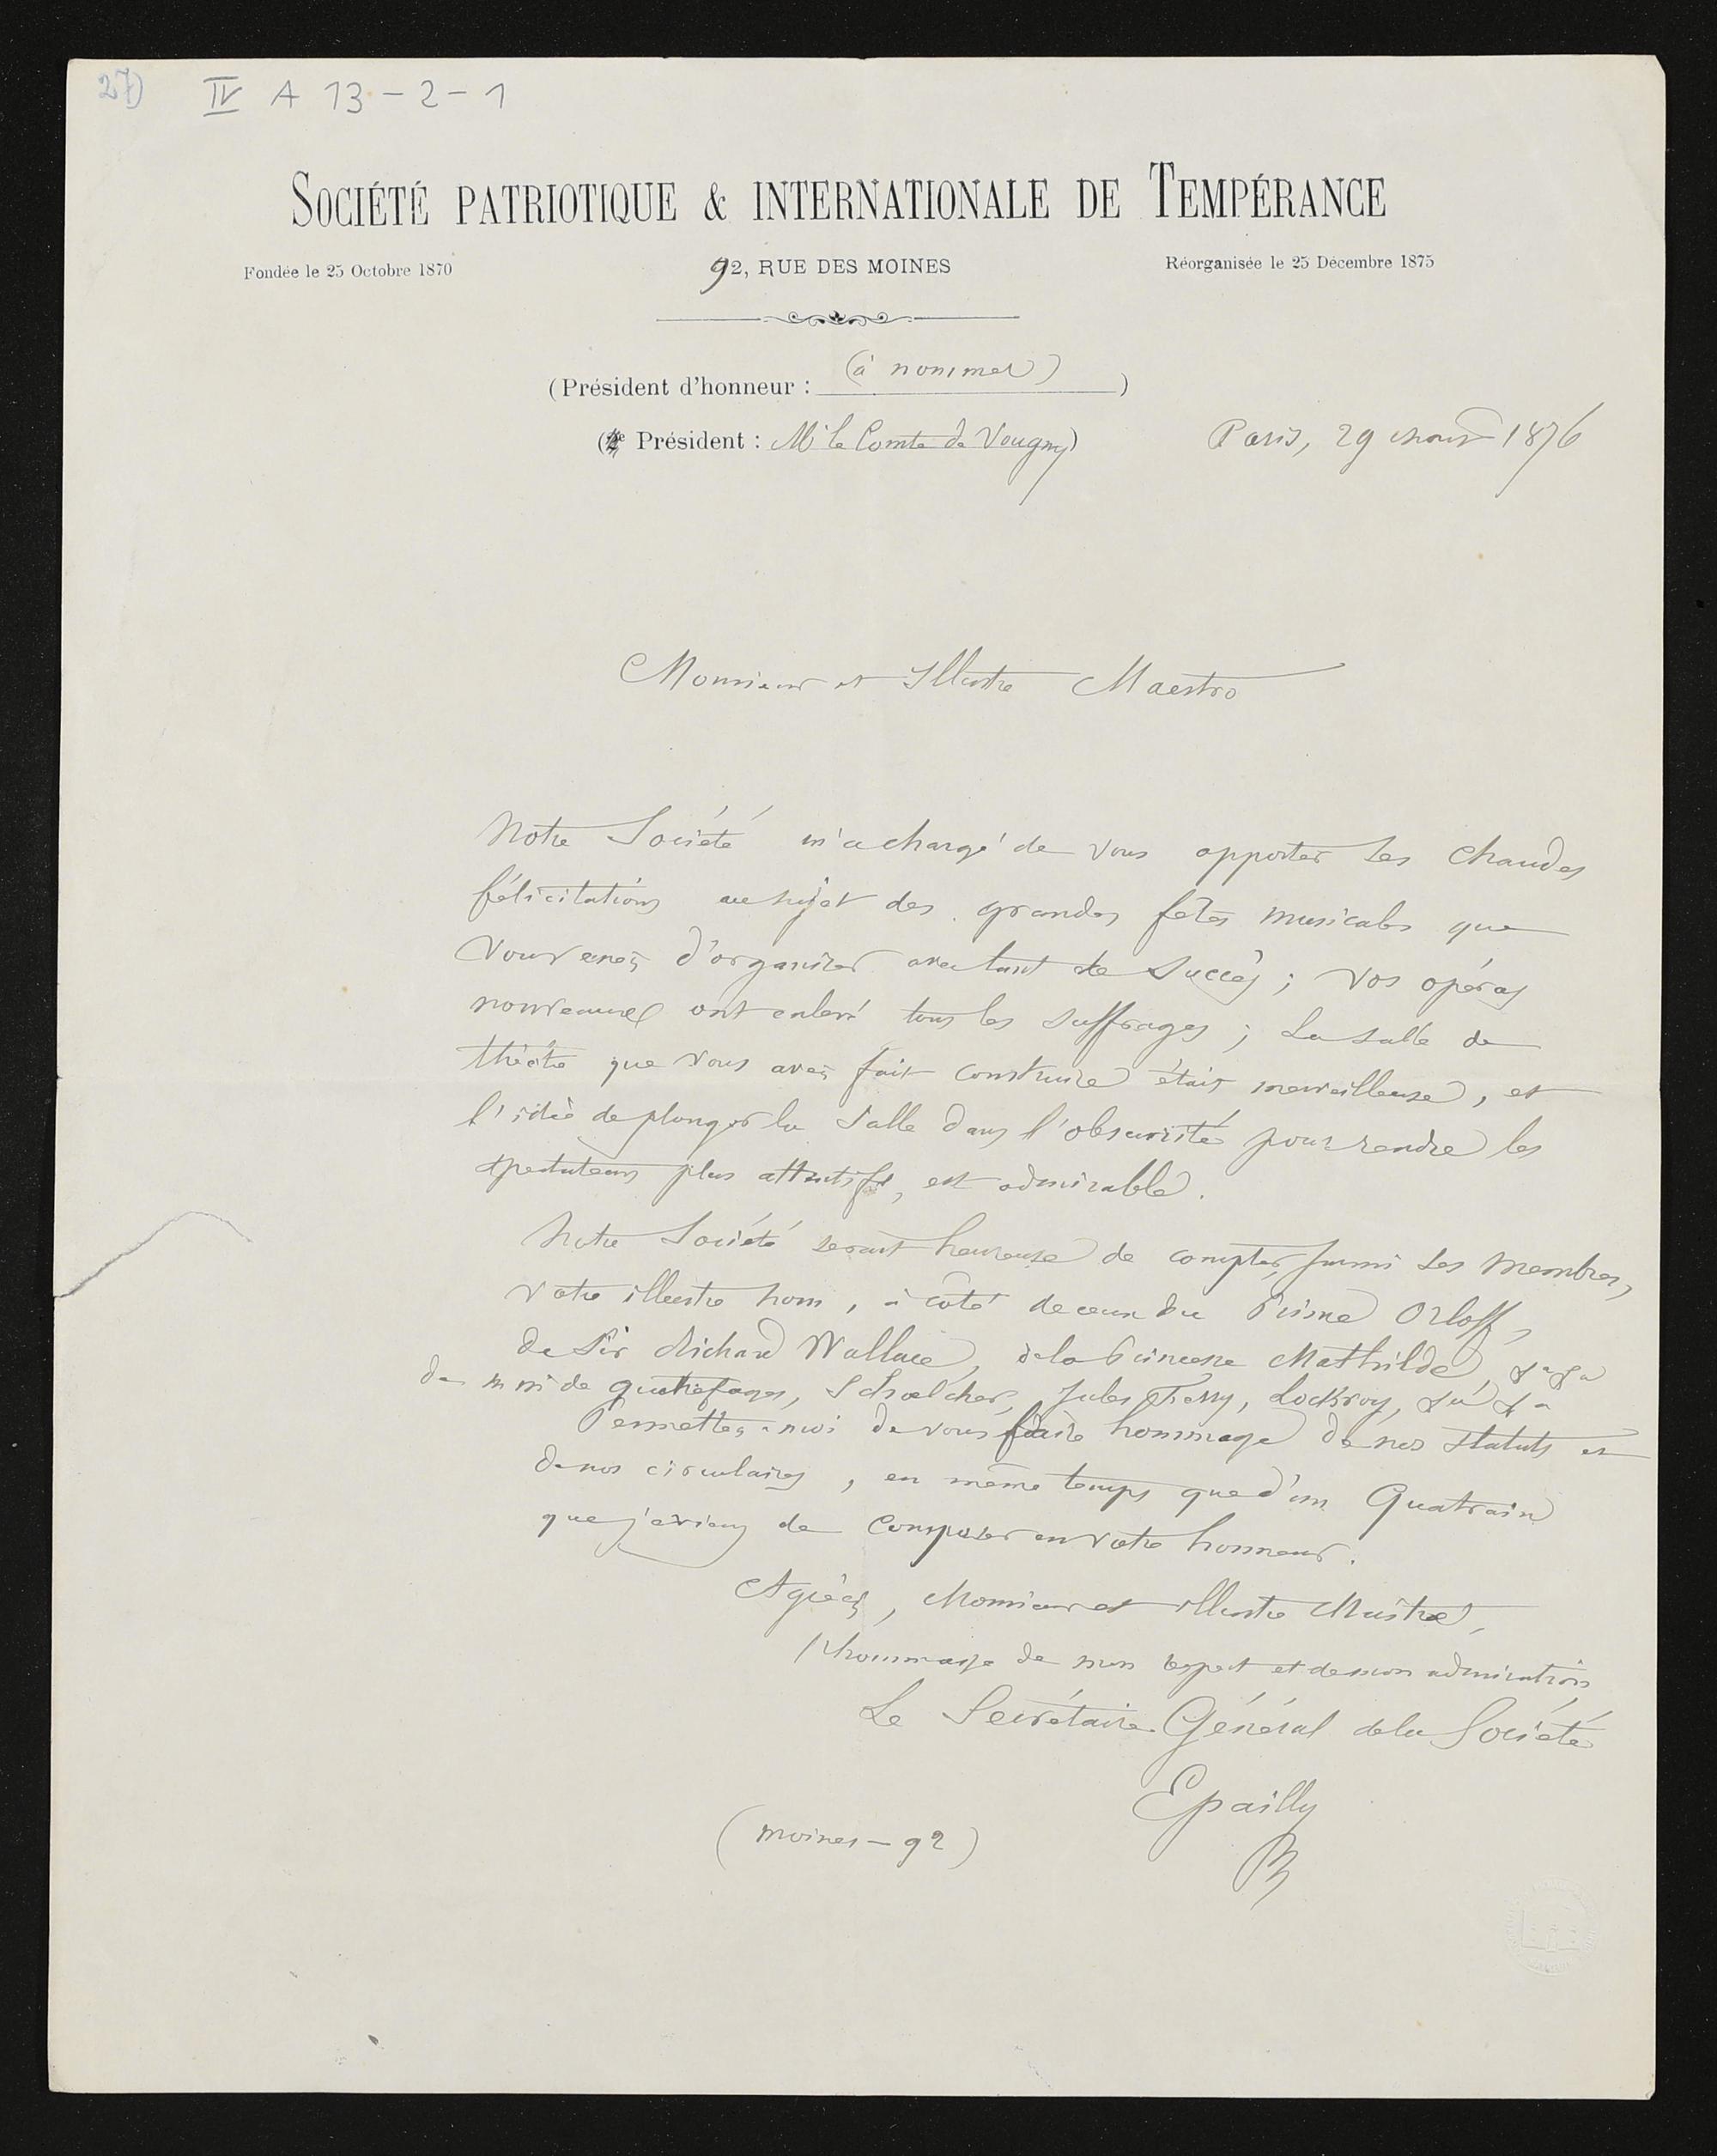 27) IV A 13-2-1
SOCIÉTÉ PATRIOTIQUE & INTERNATIONALE DE TEMPÉRANCE
Fondée le 25 Octobre 1870 92, RUE DES MOINES Réorganisée le 25 Décembre 1875
(Président d'honneur : (à nommer) )
Président : Mr le Comte de Vougny) Paris, 29 1876
Monsieur et Illustre Maestro
Notre Société m'a chargé de vous apporter ses chaudes
félicitations au sujet des grandes fêtes musicales que
vous venez d'organiser avec tant de succès ; vos opéras
nouveaux ont enlevé tous les suffrages ; La salle de
théâtre que vous avez fait construire était merveilleuse, et
l'idée de plonger la salle dans l'obscurité pour rendre les
spectateurs plus attentifs, est admirable.
Notre Société serait heureuse de compter, parmi ses membres,
votre illustre nom, à côté de ceux du Prince Orloff,
de Sir Richard Wallace, de la Princesse Mathilde, &a &a
de MM. de Quatrefages, Schoelcher, Jules Ferry, Lockroy, &a &a
Permettez-moi de vous faire hommage de nos statuts et
de nos circulaires, en même temps que d'un Quatrain
que je viens de composer en votre honneur.
Agréez, Monsieur et illustre Maître,
l'hommage de mon respect et de mon admiration
Le Secrétaire Général de la Société
Epailly
(moines - 92)